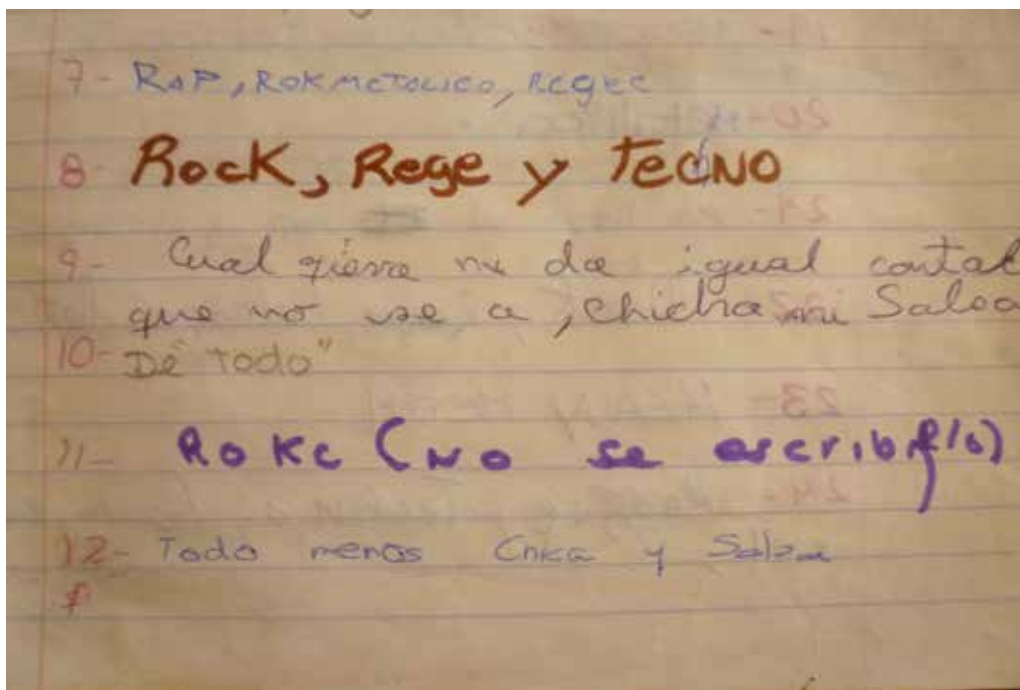 7- RaP, ROKMETALICO, REGEE
8- Rock, Rege y TecNO
9- Cual qierre me da igual contal
que no se a, chicha ni Salsa
10- DE Todo"
11- ROKE (NO se escribirlo)
12- Todo menos Chica y Salza
20-
21-
23- HEAVY METAL
24-